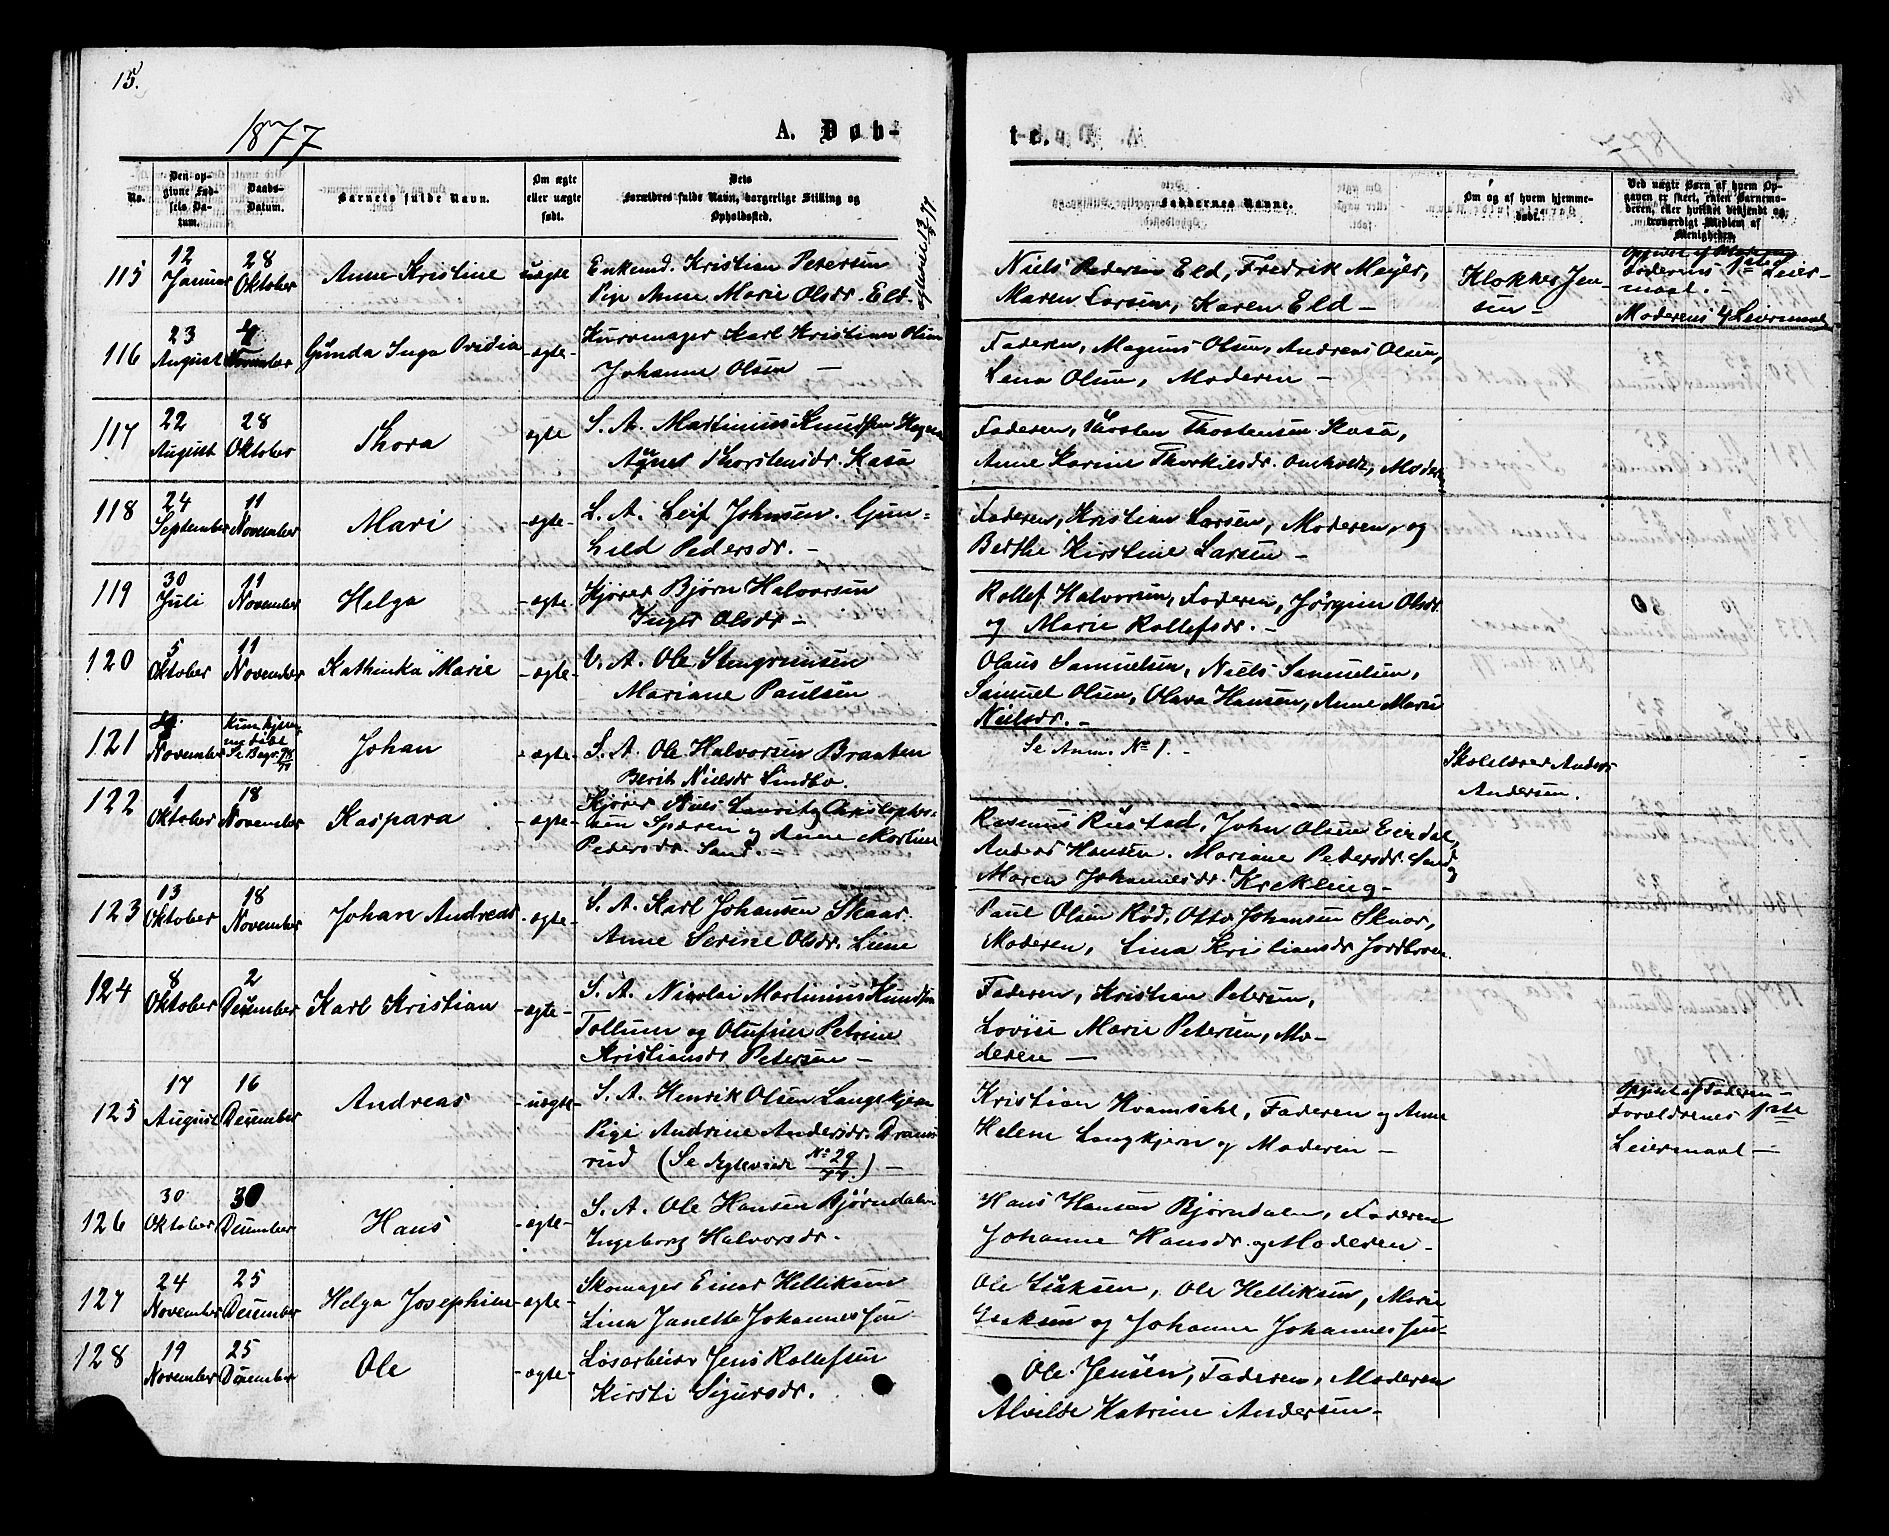 15.
1877
A. Døb-
te.
No.
Den op-
givne Fød-
sels Da-
tum.
Daabs-
Datum.
Barnets fulde Navn.
Om ægte
eller uægte
født.
Dets
Forældres fulde Navn, borgerlige Stilling og
Opholdssted.
Faddernes Navne.
Om og af hvem hjemme-
døbt.
Ved uægte Børn af hvem Op-
gaven er skeet, enten Barnemo-
deren, eller hvilket bekjendt og
troværdigt Medlem af
Menigheden.
115
12
Januar
28
Oktober
Anne Kristine
uægte
Enkemd. Kristian Petersen
Pige Anne Marie Olsdr. Eld.
Niels Pedersen Eld, Fredrik Meyer,
Maren Larsen, Karen Eld –
Klokker Jen-
sen –
Faderens 1ste Leier-
maal. –
Moderens 4 Leiermaal
116
23
August
4
November
Gunda Inga Ovidia
- ægte -
Kurvemager Karl Kristian Olsen
Johanne Olsen –
Faderen, Magnus Olsen, Andreas Olsen,
Lena Olsen, Moderen –
117
22
August
28
Oktober
Thora
ægte
S. A. Martinius Knudsen
Agnes Thorstensdr. Kasa
Faderen, Thosten Thostensen Kasa,
Anne Karine Thorkilsdr. Omholt, Moderen
118
24
September
11
November
Mari
- ægte -
L. A. Leif Johnsen. Gun-
hild Pedersdr. –
Faderen, Kristian Larsen, Moderen, og
Berthe Kirstine Larsen –
119
30
Juli
11
November
Helga
- ægte -
Kjører Bjørn Halvorsen
Inger Olsdr –
Rollef Halvorsen, Faderen, Jørgine Olsdr
og Marie Rollefsdr. –
120
5
Oktober
11
November
Kathinka Marie
- ægte -
V. A. Ole Stengrimsen
Mariane Paulsen
Olaus Samuelsen, Niels Samuelsen,
Samuel Olsen, Olava Hansen, Anne Marie
Nielsdr. –
121
4
November
Kun hjem-
me døbt
Johan
- ægte -
S. A. Ole Halvorsen Braaten
Berit Nielsdr Lindbo.
Se Anm. No 1. –
Skolelærer Anders
Andersen.
122
1
Oktober
18
November
Kaspara
- ægte -
Kjører Niels Lauritz Christophe-
sen Spæren og Anne Martine
Pedersdr. Sand. –
Rasmus Rustad, John Olsen Eirdal,
Anders Hansen. Mariane Pedersdr. Sand og
Maren Johannesdr. Krekling –
123
13
Oktober
18
November
Johan Andreas
- ægte -
S. A. Karl Johansen Skaar.
Anne Serine Olsdr. Liene
Paul Olsen Rød, Otto Johansen Skaar,
Moderen, Lina Kristiansdr Jordbroen.
124
8
Oktober
2
December
Karl Kristian
- ægte -
S. A. Nicolai Martinius Knudsen
Tollum og Olufine Petrine
Kristiansdr. Petersen –
Faderen, Kristian Petersen,
Lovise Marie Petersen, Mo-
deren –
125
17
August
16
December
Andreas
- uægte -
S. A. Henrik Olsen Langkjern
Pige Andrine Andersdr. Drams-
rud (Se Ægteviede No 29/77.) –
Kristian Kvamsdhl, Faderen og Anne
Helene Langkjern og Moderen –
Opgivet af Faderen –
Forældrenes 1ste
Leiermaal –
126
30
Oktober
30
December
Hans
- ægte -
S. A. Ole Hansen Bjørndalen
Ingeborg Halvorsdr.
Hans Hansen Bjørndalen, Faderen
Johanne Hansdr. og Moderen –
127
24
November
25
December
Helga Josephine
- ægte -
Skomager Einar Helliksen
Lina Janette Johannessen
Ole Isaksen, Ole Helliksen, Marie
Isaksen og Johanne Johannessen –
128
19
November
25
December
Ole
- ægte -
Løsarbeider Jens Rollefsen
Kirsti Sjursdr.
Ole Jensen, Faderen, Moderen
Alvilde Katrine Andersen –